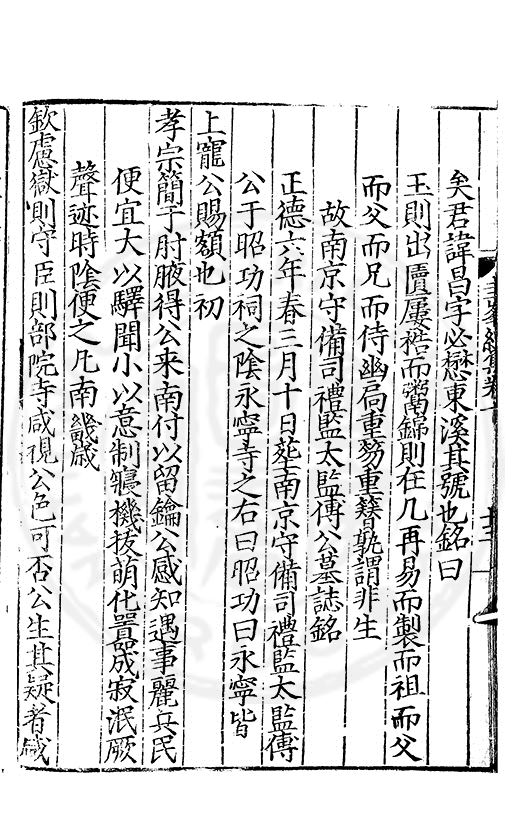 矣君諱昌字必懋東溪其號也銘曰
玉則出匵屢褚而鬻錦則在几再易而製而祖而父
而父而兄而侍幽扃重勞重簪孰謂非生
故南京守備司禮監太監傅公墓誌銘
正德六年春三月十日塟南京守備司禮監太監傅
公于昭功祠之陰永寧寺之右曰昭功曰永寧皆
上寵公賜額也初
孝宗簡于肘腋得公来南付以留鑰公感知遇事麗兵民
便宜大以驛聞小以意制寢機拔萌化嚚成寂泯厥
聲迹時陰便之凡南畿歲
欽慮獄則守臣則部院寺咸視公色可否公生其疑者歲